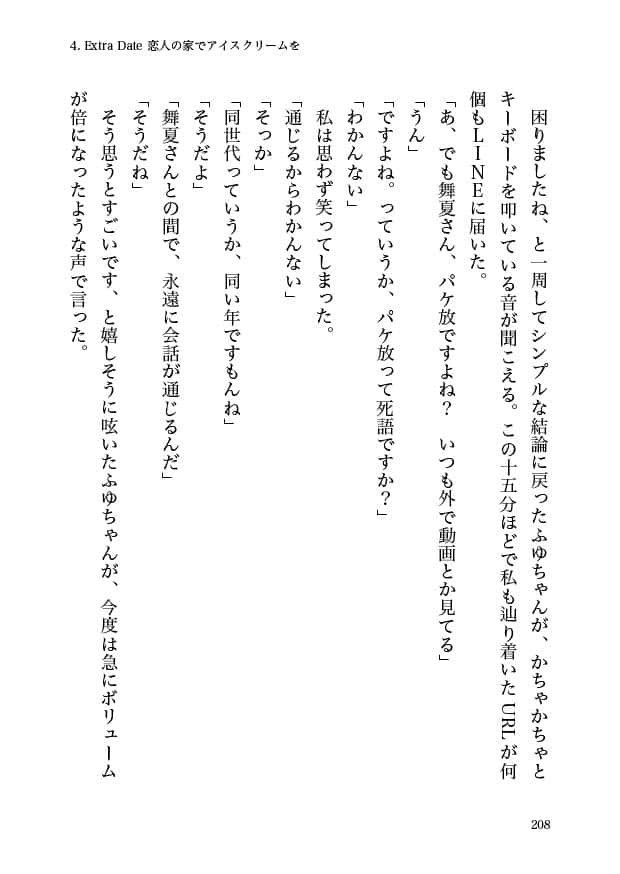 4. Extra Date 恋人の家でアイスクリームを
　困りましたね、と一周してシンプルな結論に戻ったふゆちゃんが、かちゃかちゃと
キーボードを叩いている音が聞こえる。この十五分ほどで私も辿り着いたURLが何
個もＬＩＮＥに届いた。
「あ、でも舞夏さん、パケ放ですよね？　いつも外で動画とか見てる」
「うん」
「ですよね。っていうか、パケ放って死語ですか？」
「わかんない」
　私は思わず笑ってしまった。
「通じるからわかんない」
「そっか」
「同世代っていうか、同い年ですもんね」
「そうだよ」
「舞夏さんとの間で、永遠に会話が通じるんだ」
「そうだね」
　そう思うとすごいです、と嬉しそうに呟いたふゆちゃんが、今度は急にボリューム
が倍になったような声で言った。
208